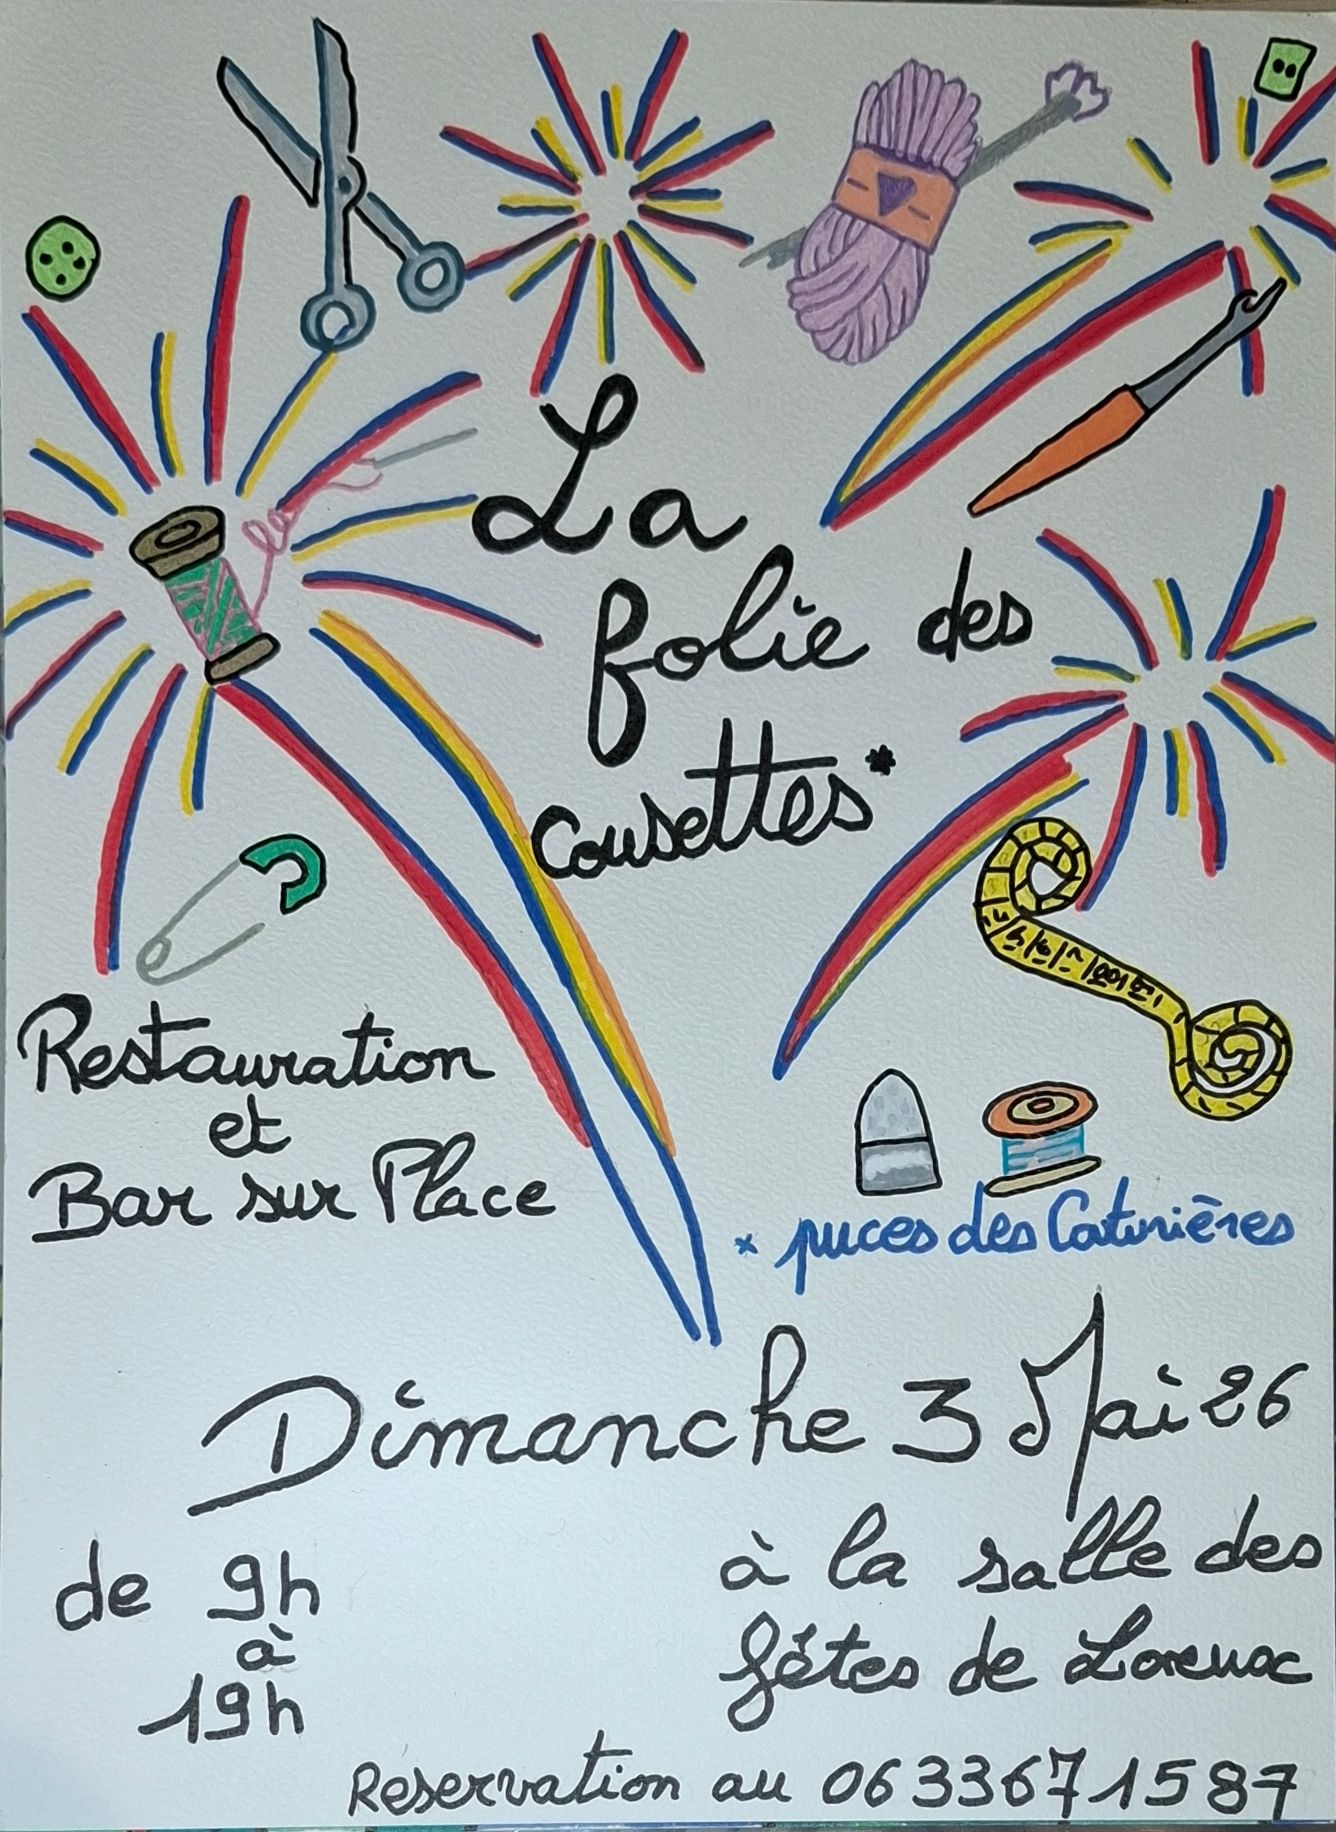 La
folie des
cousettes*
Restauration
et
Bar sur Place
* puces des
Dimanche 3 Mai 26
de 9h
à
19h
à la salle des
fêtes de
Reservation au 0633671587